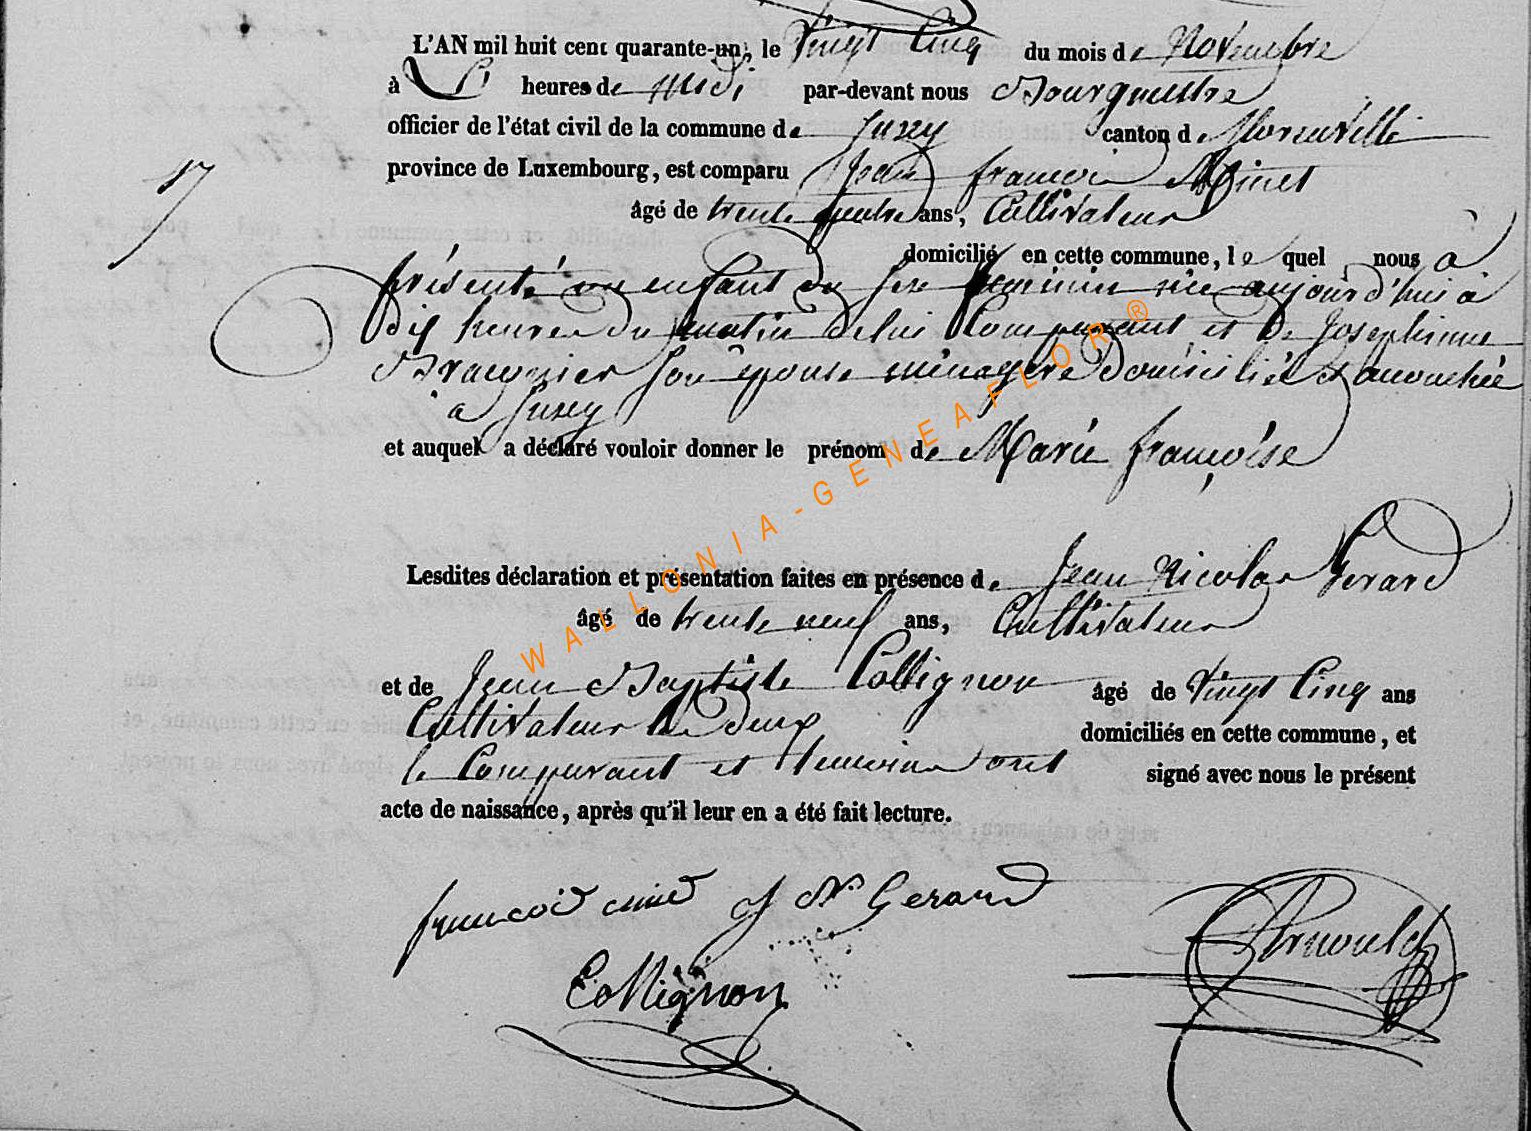 L'AN mil huit cent quarante-un, le Vingt Cinq du mois de Novembre
à heures de midi par-devant nous Bourgmestre
officier de l'état civil de la commune de Juzey canton de
17
province de Luxembourg, est comparu Jean françois Minet
âgé de trente quatre ans, Cultivateur
domicilié en cette commune, le quel nous a
présenté un enfant du sexe féminin née aujourd'hui à
dix heures du matin de lui Comparant et de Josephinne
son épouse ménagère domiciliée et accouchée
a Juzey
et auquel a déclaré vouloir donner le prénom de Marie françoise
Lesdites déclaration et présentation faites en présence de Jean Nicolas Gerard
âgé de trente neuf ans, Cultivateur
et de Jean Baptiste Collignon âgé de Vingt Cinq ans
Cultivateur deux domiciliés en cette commune, et
le Comparant et temoins ont signé avec nous le présent
acte de naissance, après qu'il leur en a été fait lecture.
francois J N Gerard
Collignon
Arnould
WALLONIA-GENEAFLOR®